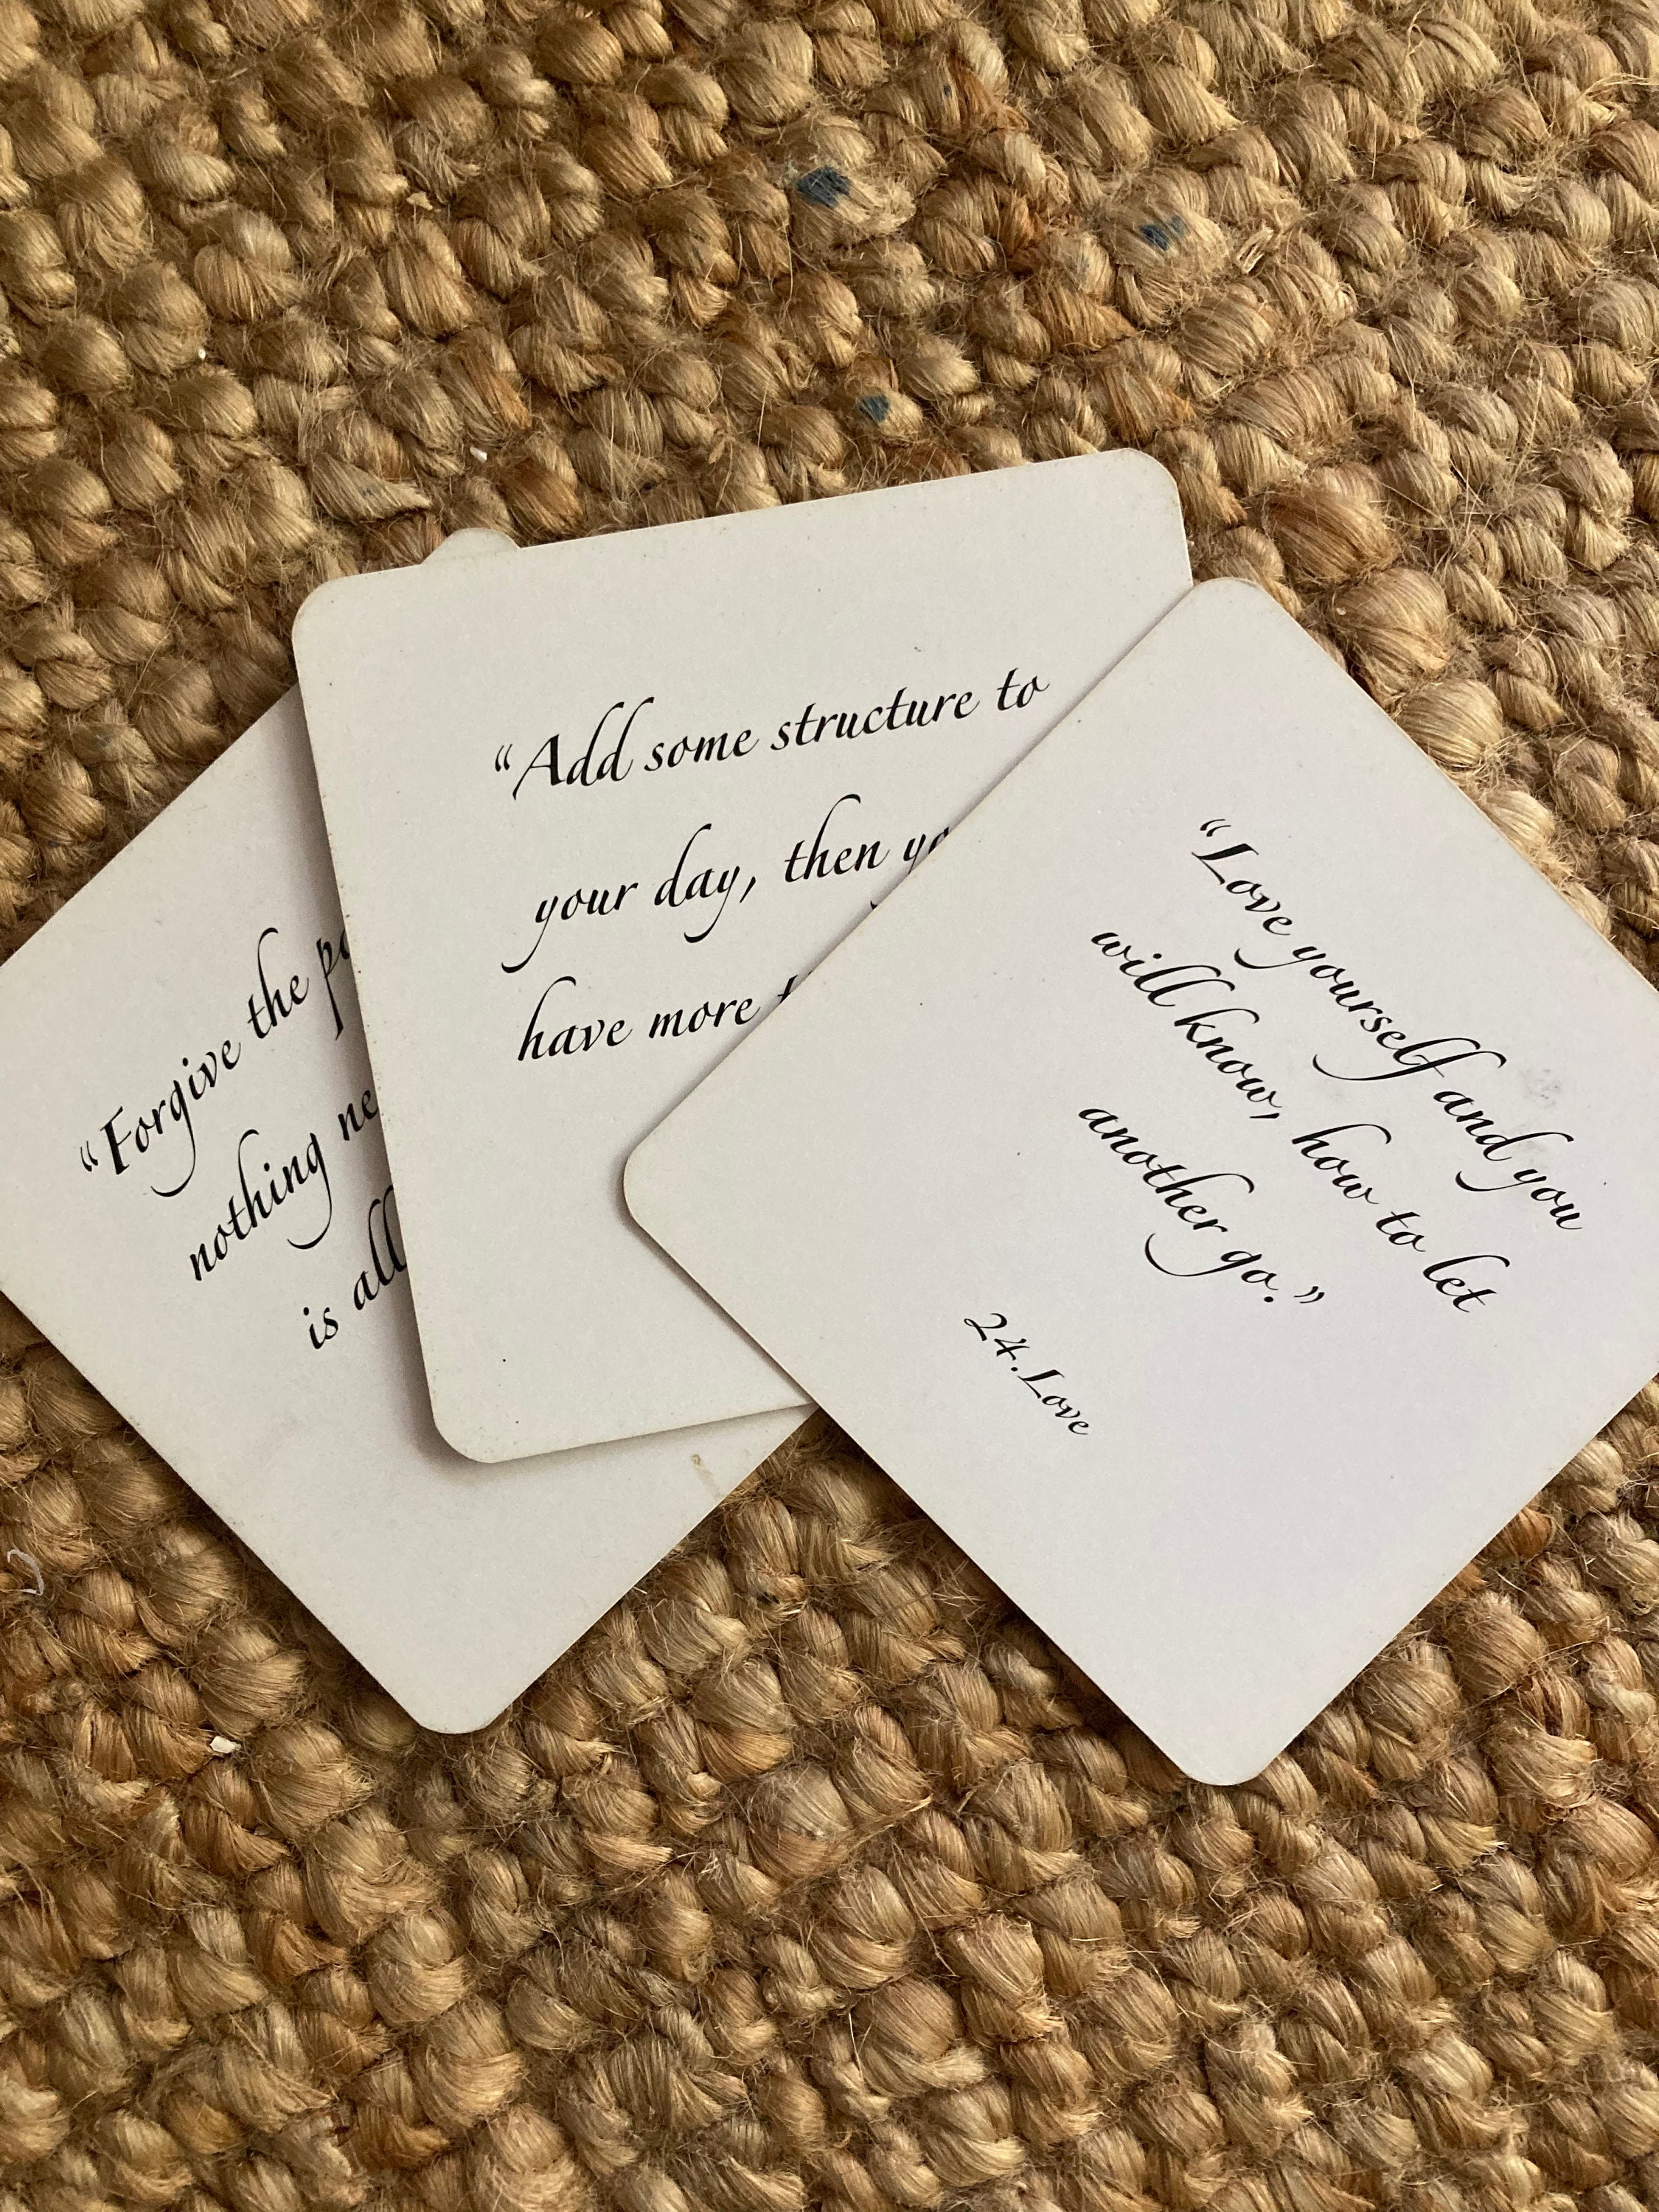 "Forgive the
nothing
is all
"Add some structure to
your day, then
have more
"Love yourself and you
will know, how to let
another go."
24. Love